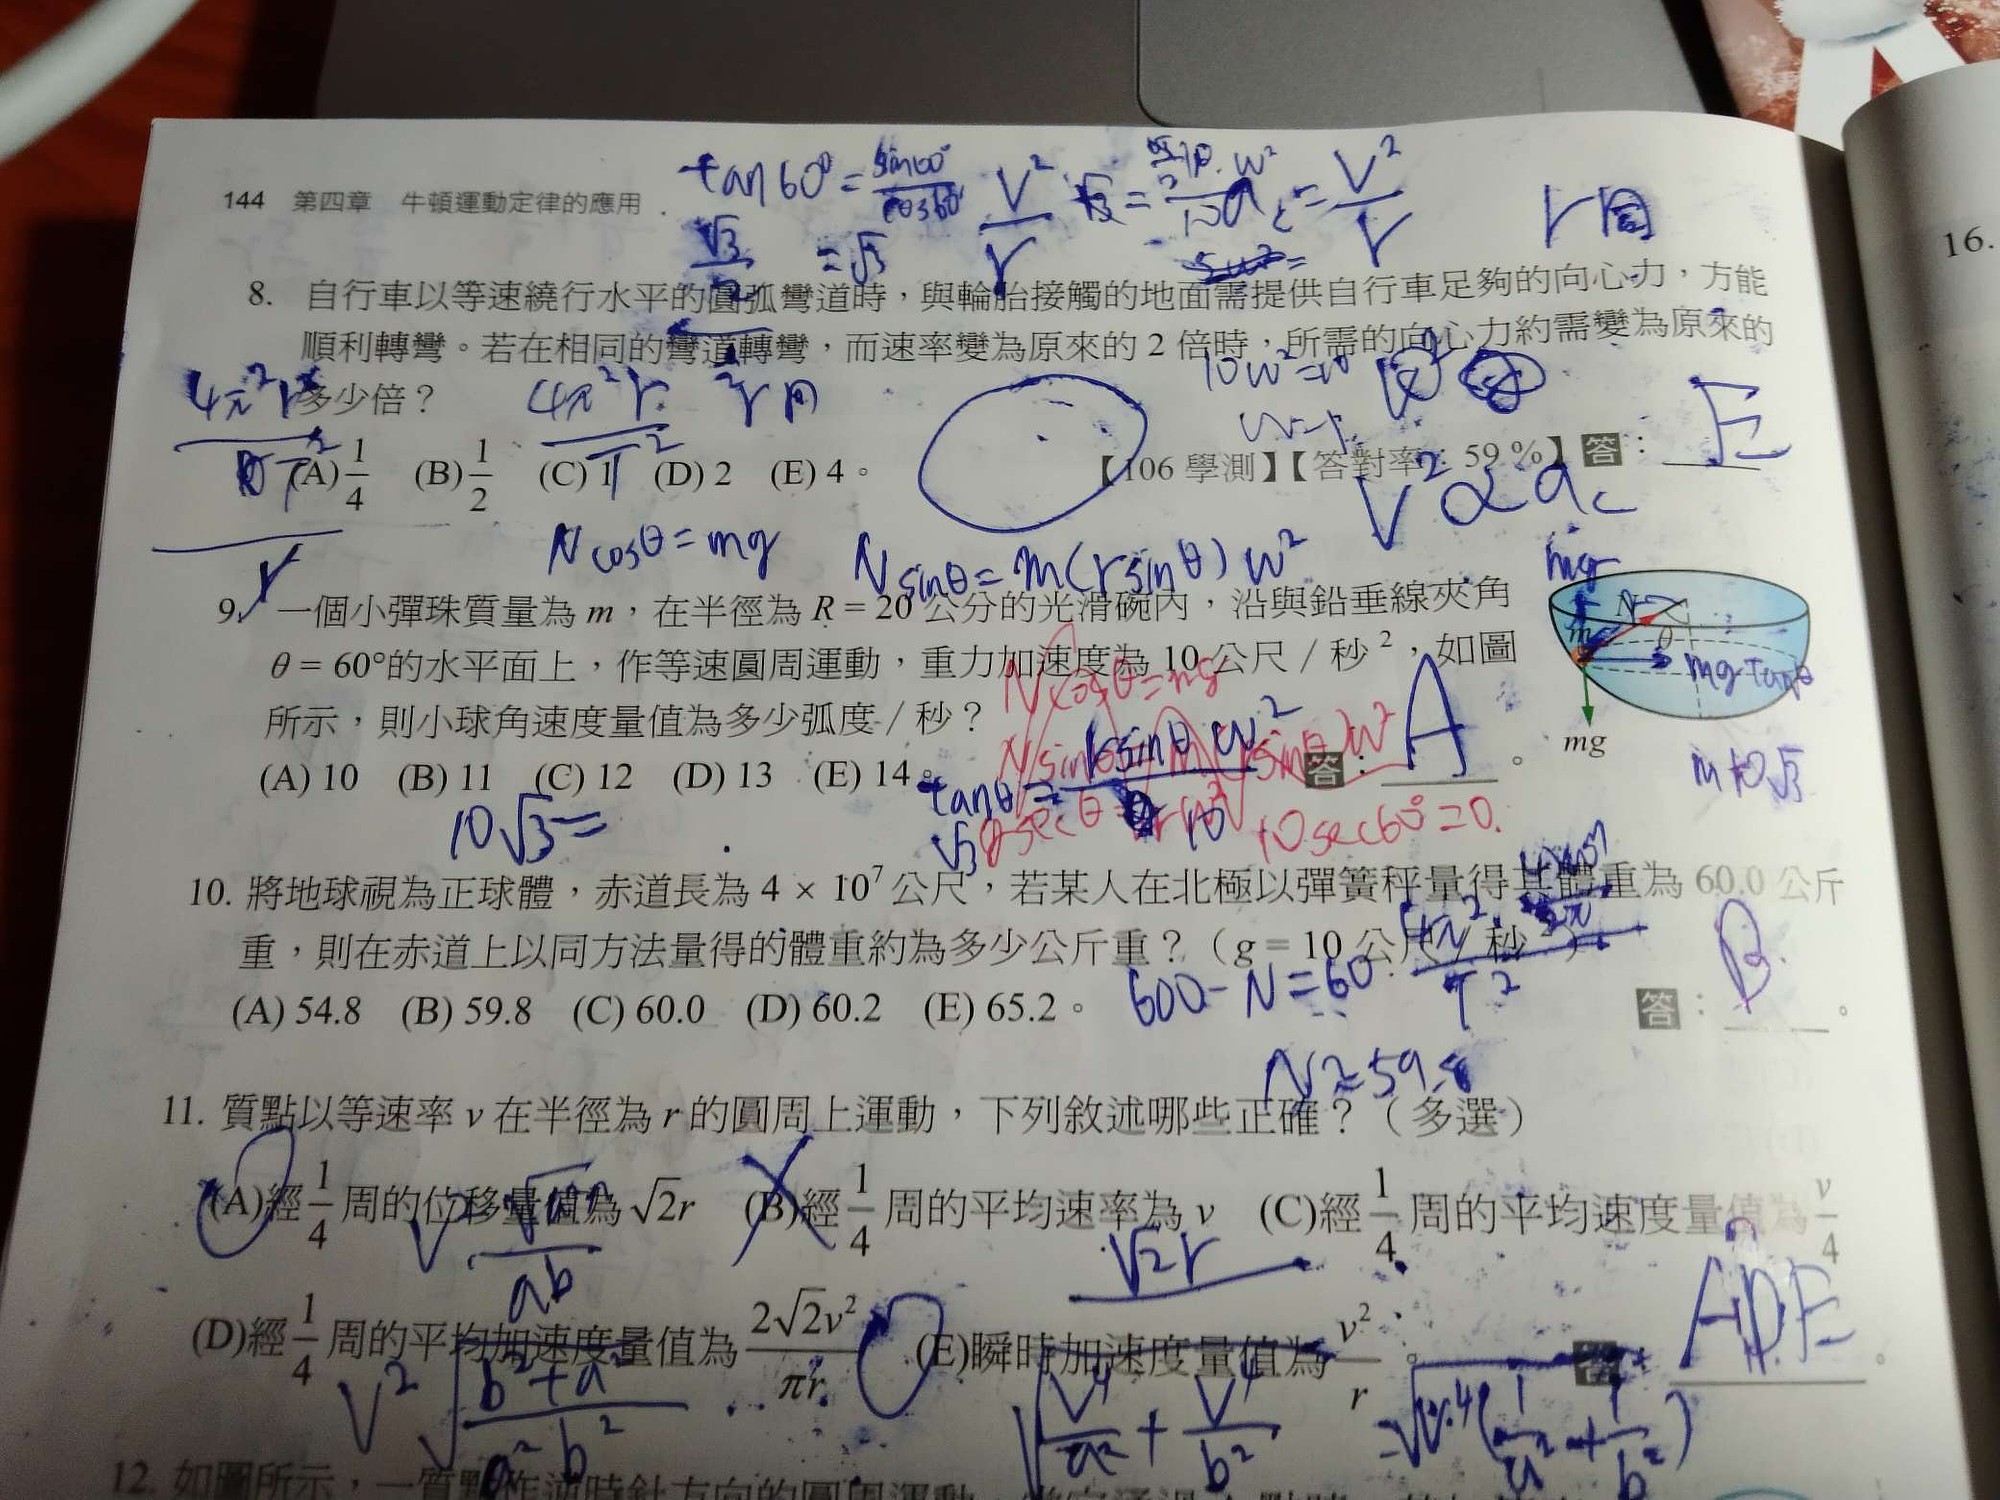 144 第四章 牛頓運動定律的應用
tan60° = sin60° / cos60°
= √3
V² / r
a c = V² / r
r 固
8. 自行車以等速繞行水平的圓弧彎道時，與輪胎接觸的地面需提供自行車足夠的向心力，方能
順利轉彎。若在相同的彎道轉彎，而速率變為原來的 2 倍時，所需的向心力約需變為原來的
多少倍？
4π²r / T²
10w²=
(A) 1/4 (B) 1/2 (C) 1 (D) 2 (E) 4。
【106 學測】【答對率：59 %】答：E
V² ∝ a c
r
Ncosθ = mg
Nsinθ = m(rsinθ) w²
9. 一個小彈珠質量為 m，在半徑為 R = 20 公分的光滑碗內，沿與鉛垂線夾角
θ = 60°的水平面上，作等速圓周運動，重力加速度為 10 公尺 / 秒²，如圖
所示，則小球角速度量值為多少弧度 / 秒？
(A) 10 (B) 11 (C) 12 (D) 13 (E) 14。
答：A。
mg
N
m
θ
mg tanθ
mg
Ncosθ = mg
tanθ = rsinθ w² / 10
10√3 =
√3
10sec60° = 20
10. 將地球視為正球體，赤道長為 4 × 10⁷ 公尺，若某人在北極以彈簧秤量得其體重為 60.0 公斤
重，則在赤道上以同方法量得的體重約為多少公斤重？（g = 10 公尺 / 秒²）
(A) 54.8 (B) 59.8 (C) 60.0 (D) 60.2 (E) 65.2。
答：B。
600 - N = 60
T²
N ≈ 59.8
11. 質點以等速率 v 在半徑為 r 的圓周上運動，下列敘述哪些正確？（多選）
(A)經 1/4 周的位移量值為 √2r (B)經 1/4 周的平均速率為 v (C)經 1/4 周的平均速度量值為 v/4
ab
√2r
(D)經 1/4 周的平均加速度量值為 2√2v² / πr (E)瞬時加速度量值為 v² / r。
答：ADE。
V² √(b²+a² / a²b²)
√(V⁴/a² + V⁴/b²)
= √(V⁴(1/a² + 1/b²))
12. 如圖所示，一質點作逆時針方向的圓周運動，